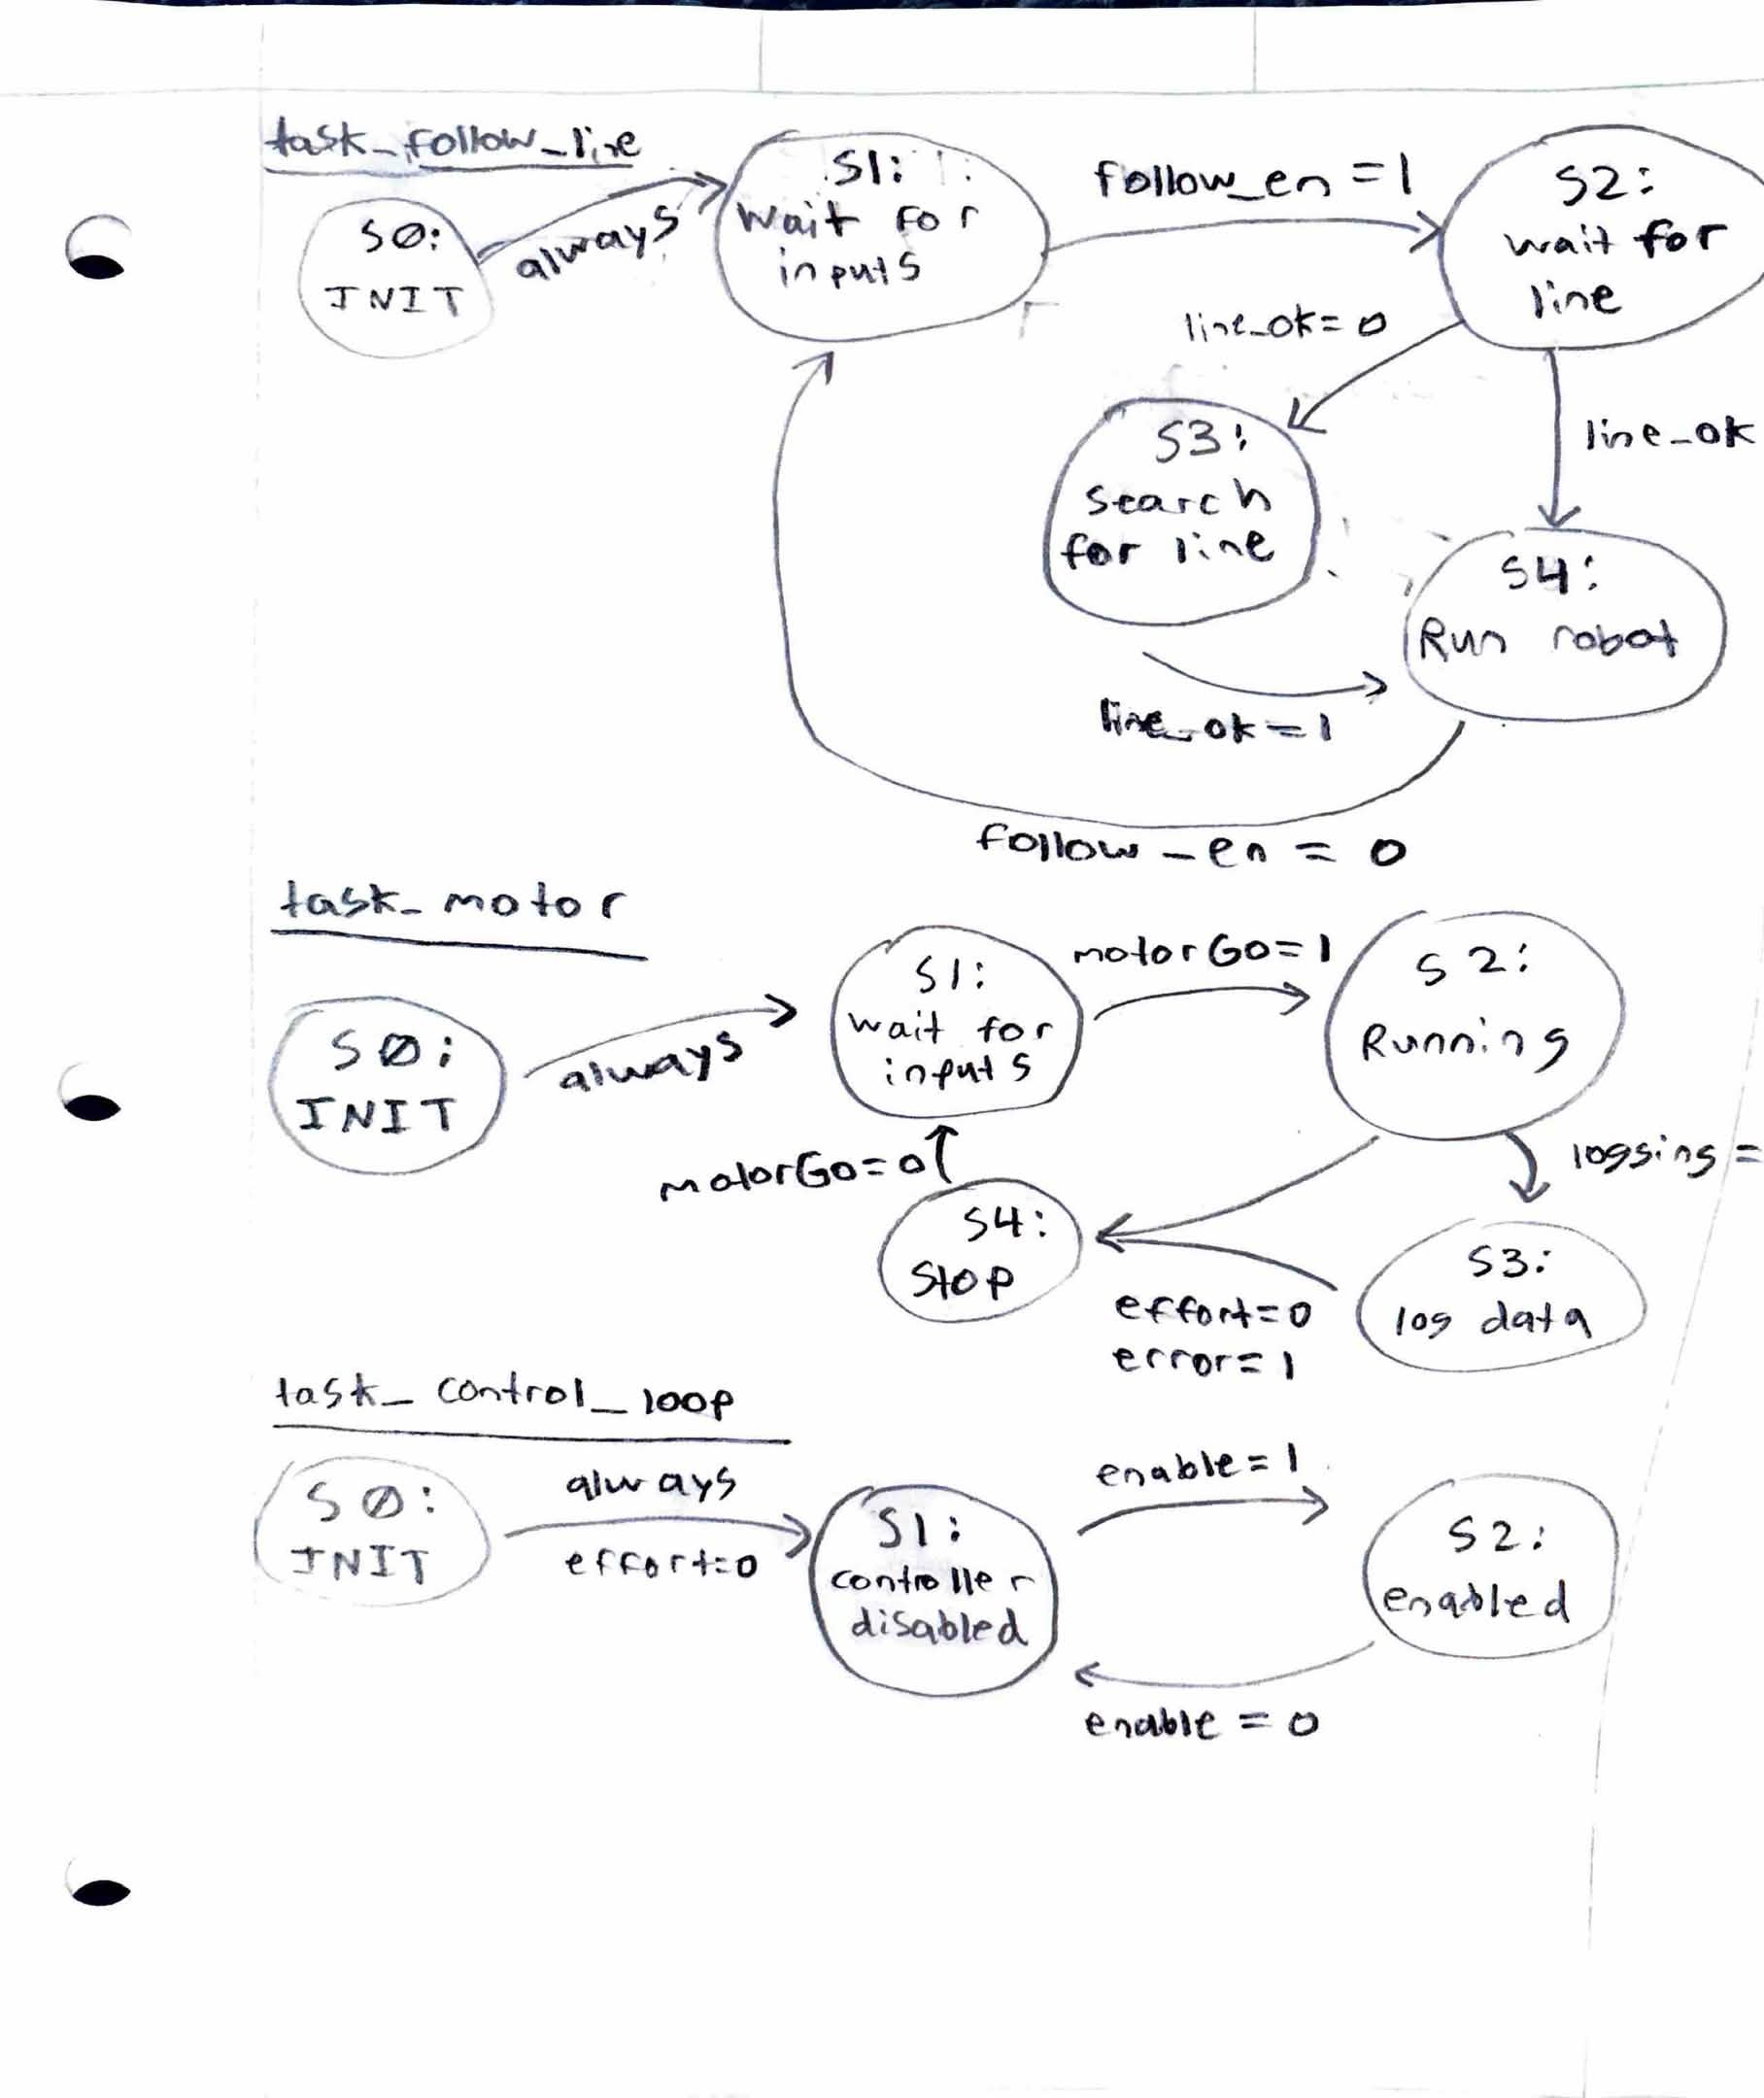 task_follow_line
S0:
INIT
always
S1:
wait for
inputs
follow_en = 1
S2:
wait for
line
line_ok = 0
line_ok
S3:
search
for line
S4:
Run robot
line_ok = 1
follow_en = 0
task_motor
S0:
INIT
always
S1:
wait for
inputs
motorGo=1
S2:
Running
logging =
motorGo=0
S4:
Stop
S3:
log data
effort=0
error=1
task_control_loop
S0:
INIT
always
effort=0
S1:
controller
disabled
enable=1
S2:
enabled
enable = 0